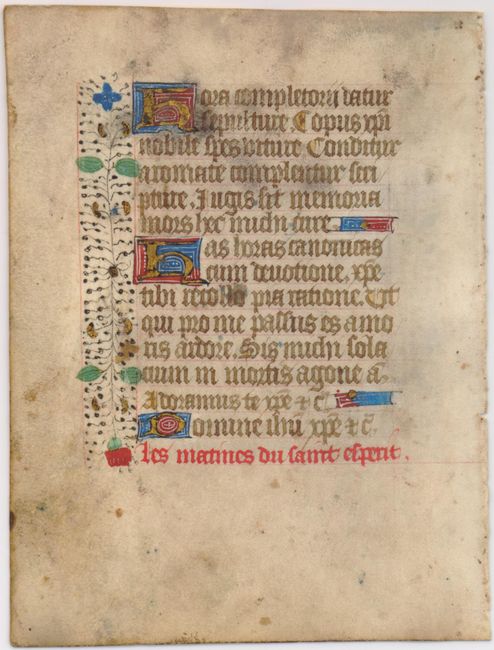 Hora completorij datur
sepulture. Copus xpi
nobile spes viture Conditur
aromate complentur scri
pture. Jugis sit memoria
mors hec michi cure.
Has horas canonicas
cum deuotione. xpe
tibi recollo pia ratione. Ut
qui pro me passus es amo
ris ardore. Sis michi sola
cium in mortis agone a.
Adoramus te xpe & c.
Domine ihu xpe & c.
les matines du saint esperit.